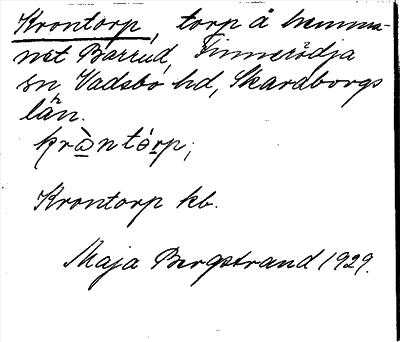 Krontorp, torp å hemma-
net Barrud, Finnerödja
sn, Vadsbo hd, Skaraborgs
län.
kràntórp;
Krontorp kb.
Maja Bergstrand 1929.